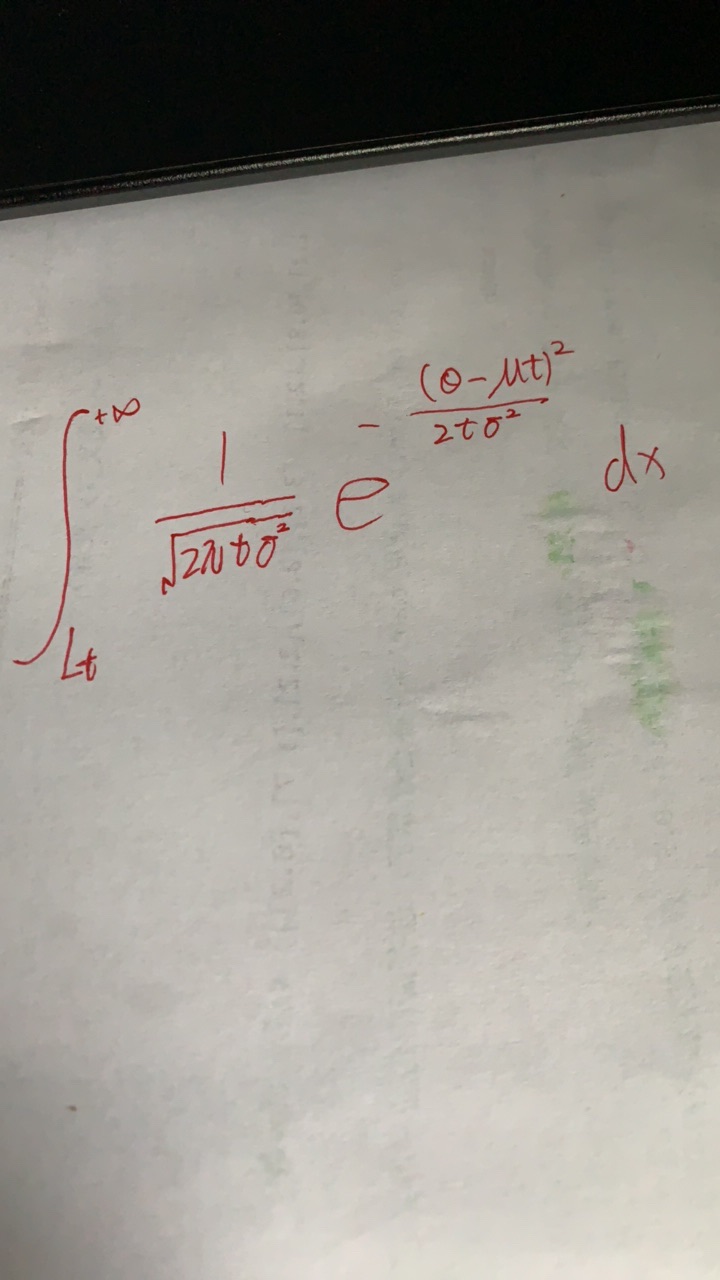 ∫_{Lt}^{+∞} \frac{1}{\sqrt{2πtσ²}} e^{-\frac{(θ-μt)²}{2tσ²}} dx